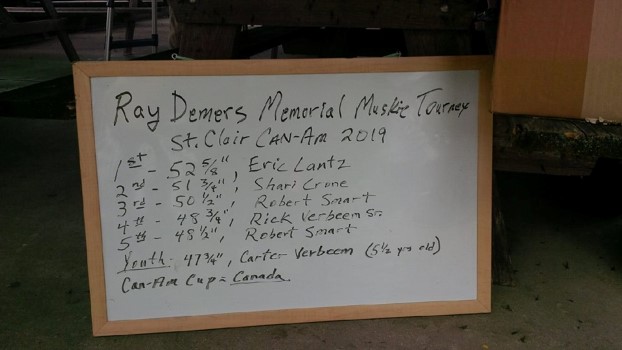 Ray Demers Memorial Muskie Tourney
St. Clair CAN-Am 2019
1st - 52 5/8", Eric Lantz
2nd - 51 3/4", Shari Crone
3rd - 50 1/2", Robert Smart
4th - 48 3/4", Rick Verbeem Sr.
5th - 48 1/2", Robert Smart
Youth - 47 3/4", Carter Verbeem (5 1/2 yrs old)
Can-Am Cup = Canada